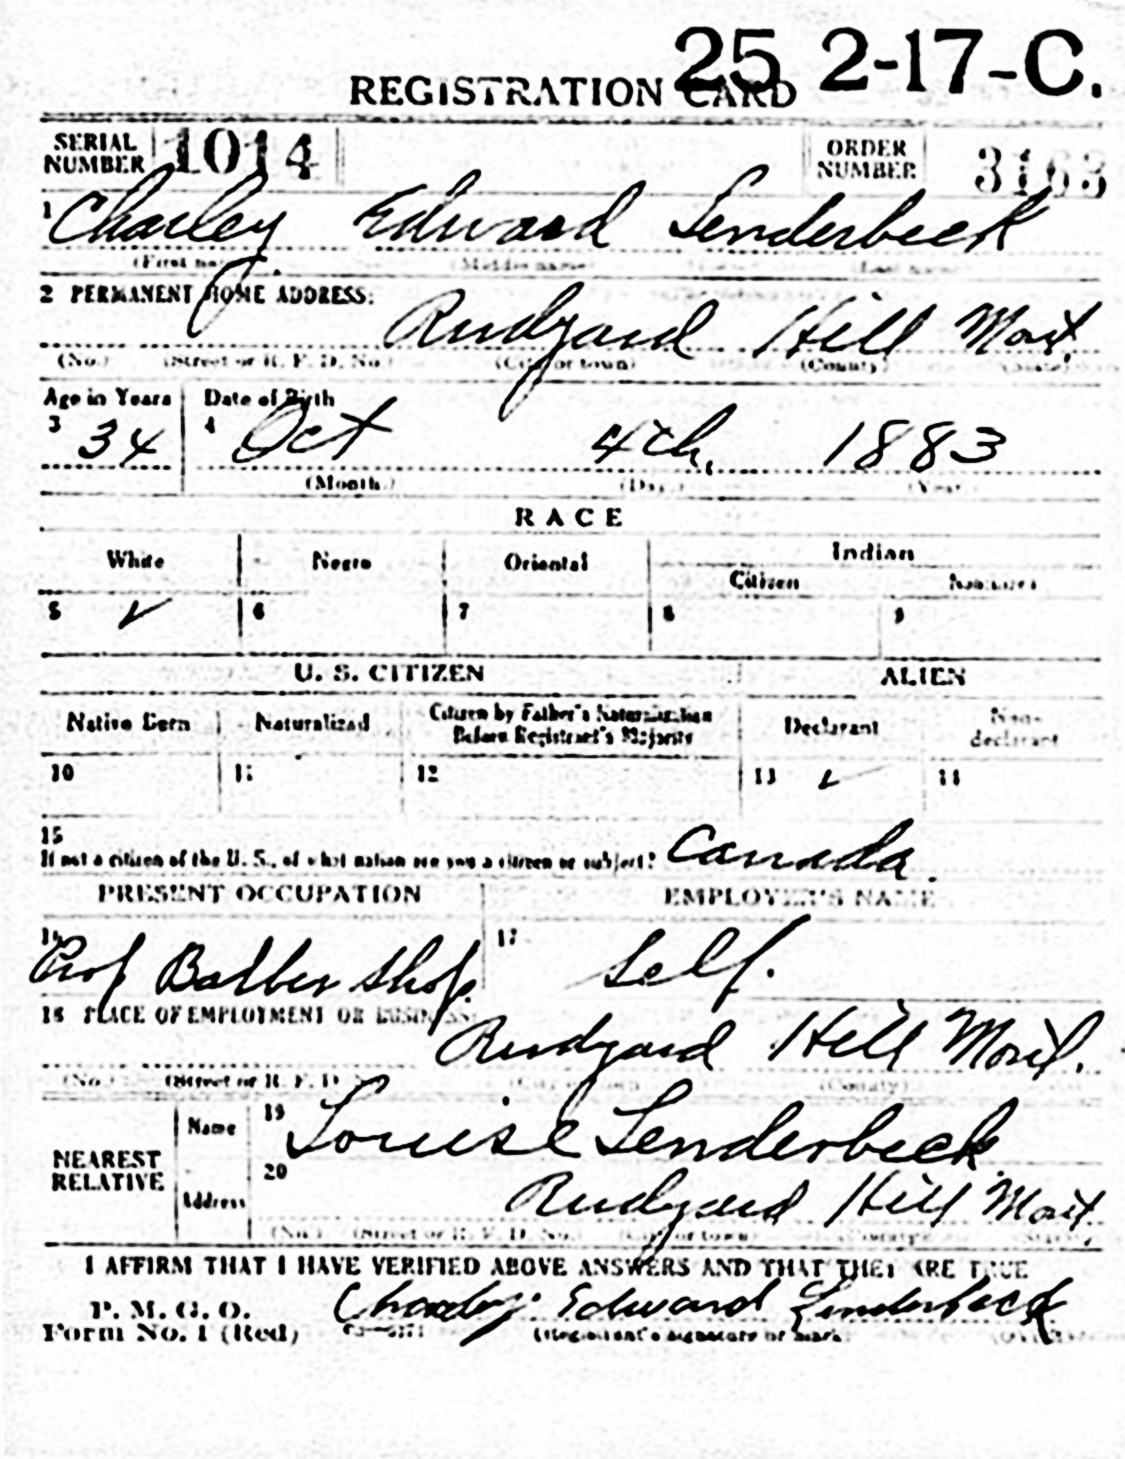 25 2-17-C.
REGISTRATION CARD
SERIAL NUMBER 1014 ORDER NUMBER 3163
1 Charley Edward Lenderbeck
(First name) (Middle name) (Last name)
2 PERMANENT HOME ADDRESS:
Rudyard Hill Mont.
(No.) (Street or R. F. D. No.) (City or town) (County) (State)
Age in Years Date of Birth
3 34 4 Oct 4th, 1883
(Month.) (Day.) (Year.)
RACE
White Negro Oriental Indian
Citizen Noncitizen
5 ✓ 6 7 8 9
U. S. CITIZEN ALIEN
Native Born Naturalized Citizen by Father's Naturalization Before Registrant's Majority Declarant Non-declarant
10 11 12 13 ✓ 14
15
If not a citizen of the U. S., of what nation are you a citizen or subject? Canada.
PRESENT OCCUPATION EMPLOYER'S NAME
16 Prop Barber Shop. 17 Self.
18 PLACE OF EMPLOYMENT OR BUSINESS:
Rudyard Hill Mont.
(No.) (Street or R. F. D.) (City or town) (County)
NEAREST RELATIVE Name 19 Louise Lenderbeck
Address 20 Rudyard Hill Mont
(No.) (Street or R. F. D. No.) (City or town) (County) (State)
I AFFIRM THAT I HAVE VERIFIED ABOVE ANSWERS AND THAT THEY ARE TRUE
P. M. G. O.
Form No. 1 (Red) Charley Edward Lenderbeck
(Registrant's signature or mark)